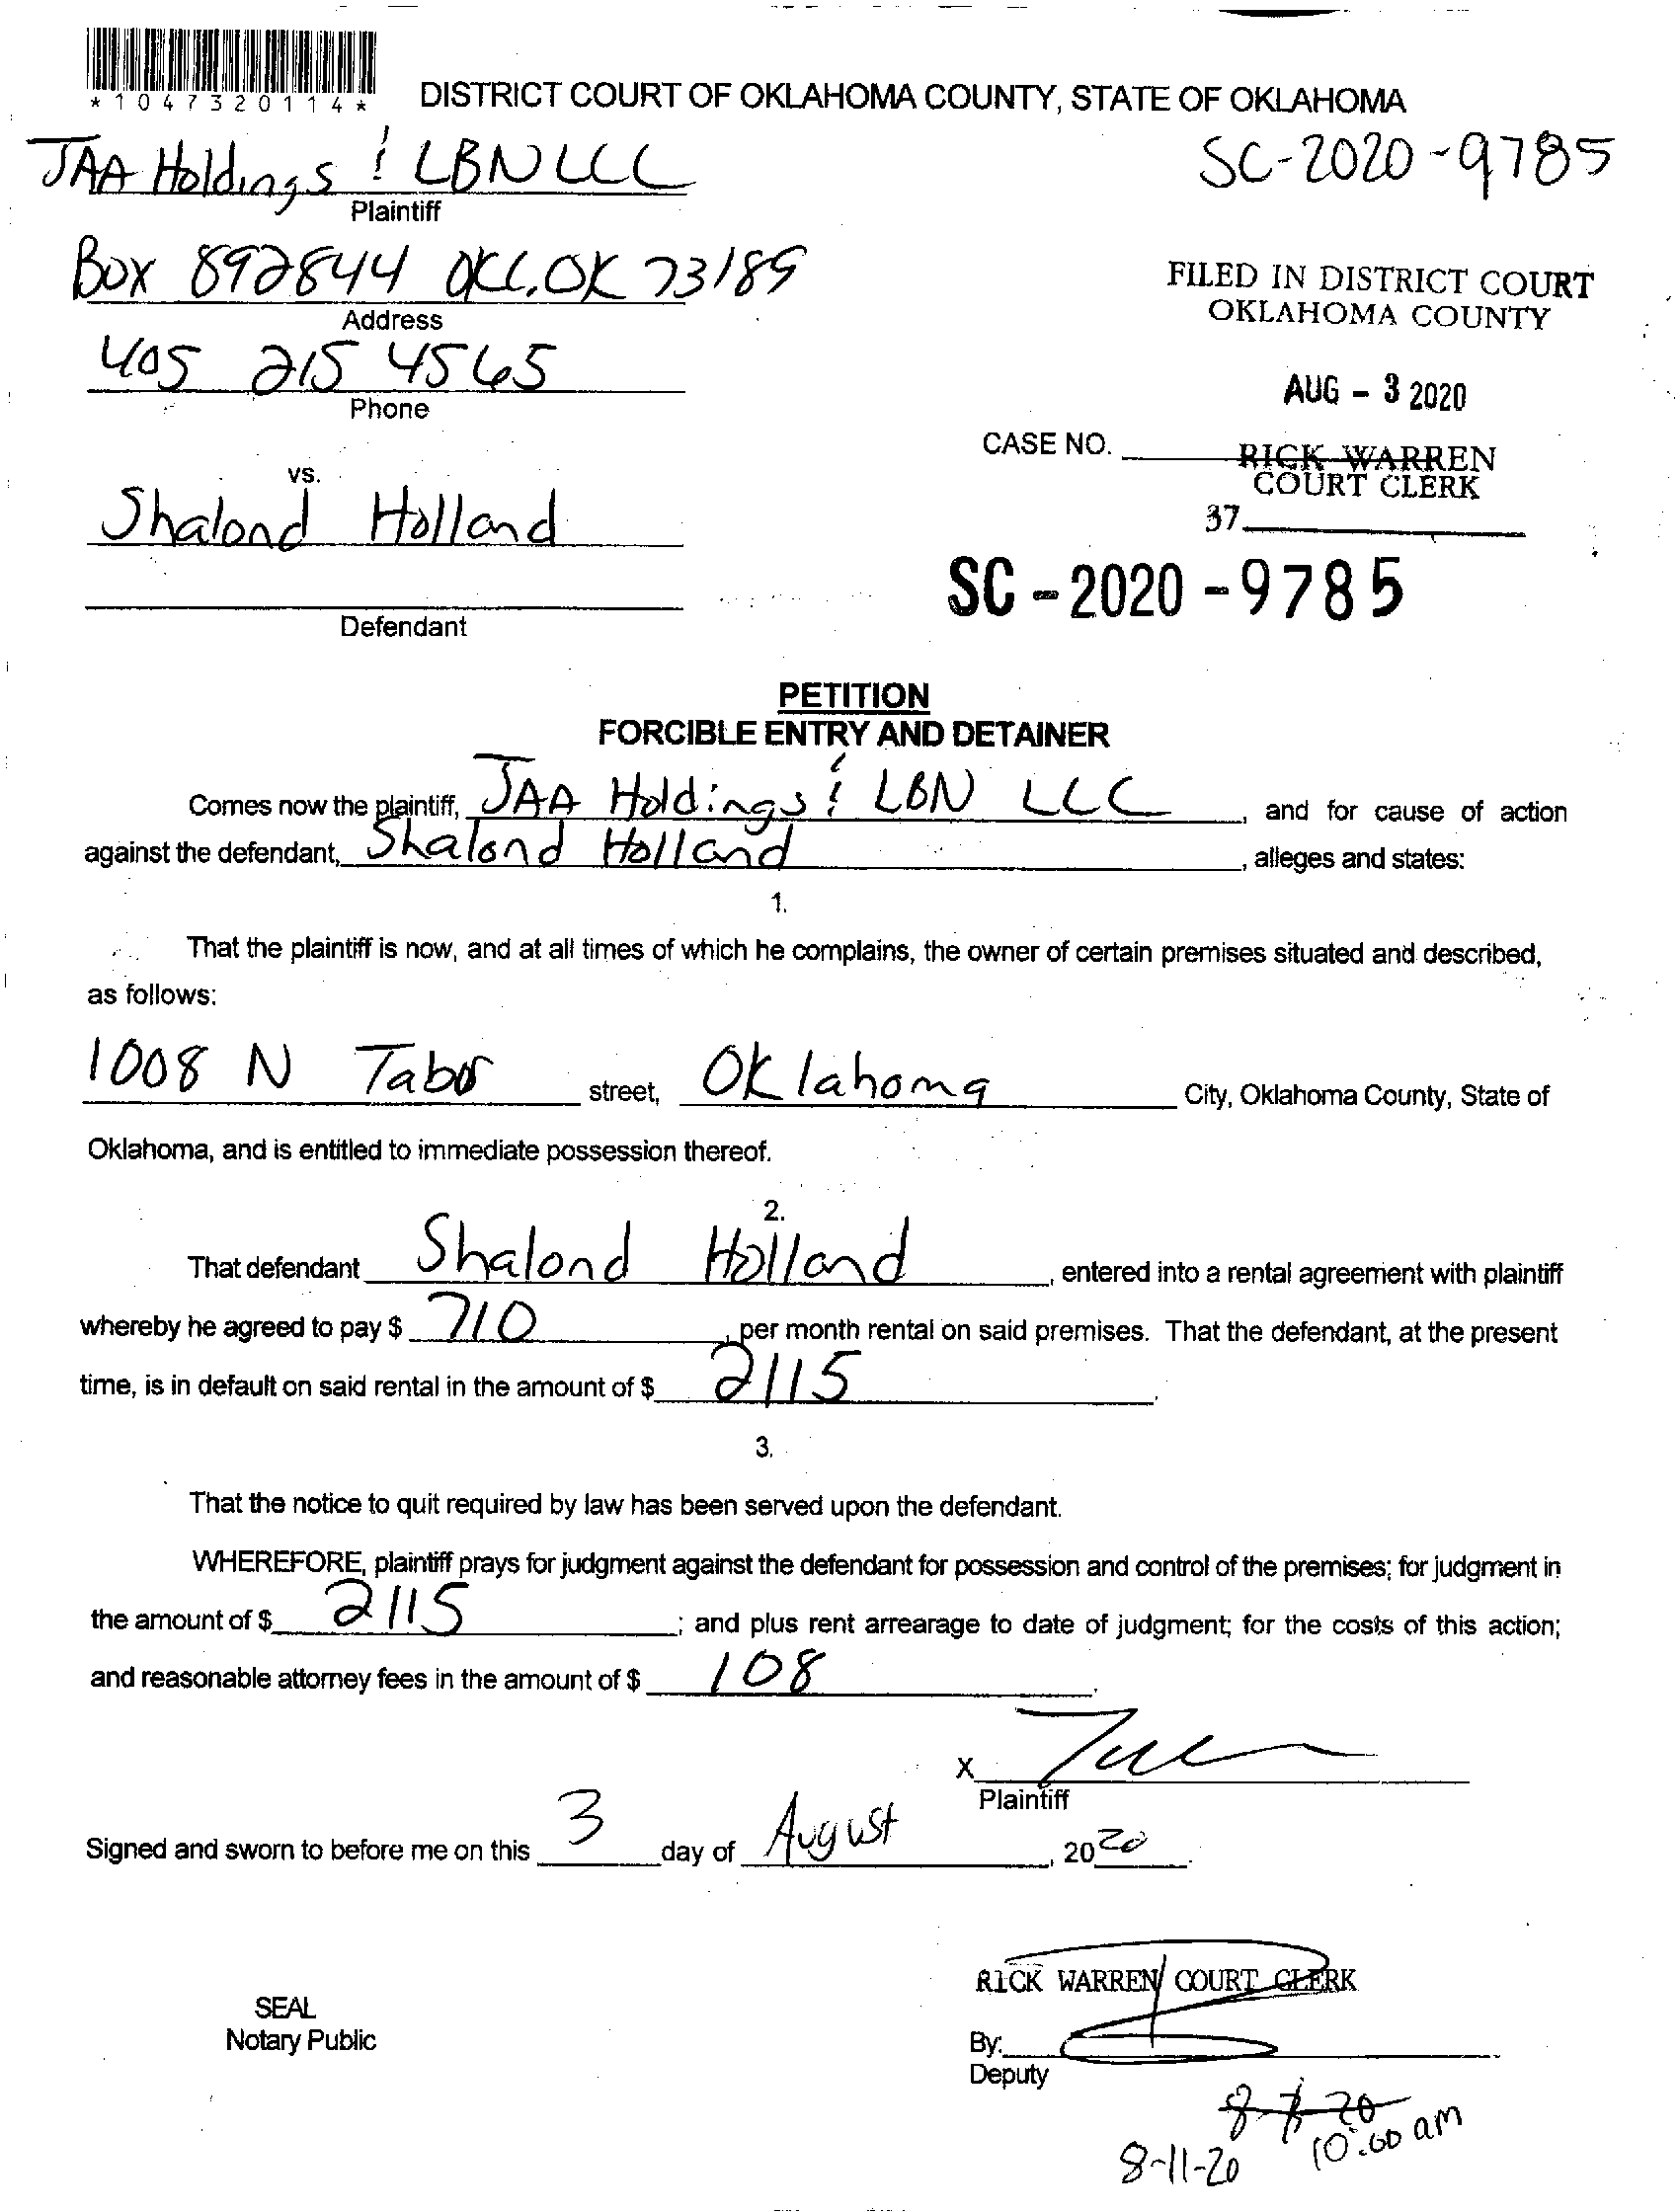 *1047320114*
DISTRICT COURT OF OKLAHOMA COUNTY, STATE OF OKLAHOMA
JAA Holdings & LBN LLC
SC-2020-9785
Plaintiff
Box 892844 OKC, OK 73189
FILED IN DISTRICT COURT
OKLAHOMA COUNTY
Address
405 215 4565
AUG - 3 2020
Phone
CASE NO.
RICK WARREN
COURT CLERK
vs.
Shalond Holland
37
SC-2020-9785
Defendant
PETITION
FORCIBLE ENTRY AND DETAINER
Comes now the plaintiff, JAA Holdings & LBN LLC, and for cause of action
against the defendant, Shalond Holland, alleges and states:
1.
That the plaintiff is now, and at all times of which he complains, the owner of certain premises situated and described,
as follows:
1008 N Tabor street, Oklahoma City, Oklahoma County, State of
Oklahoma, and is entitled to immediate possession thereof.
2.
That defendant Shalond Holland, entered into a rental agreement with plaintiff
whereby he agreed to pay $ 710, per month rental on said premises. That the defendant, at the present
time, is in default on said rental in the amount of $ 2115.
3.
That the notice to quit required by law has been served upon the defendant.
WHEREFORE, plaintiff prays for judgment against the defendant for possession and control of the premises; for judgment in
the amount of $ 2115; and plus rent arrearage to date of judgment; for the costs of this action;
and reasonable attorney fees in the amount of $ 108.
X
Plaintiff
Signed and sworn to before me on this 3 day of August, 2020.
RICK WARREN COURT CLERK
SEAL
Notary Public
By:
Deputy
8-7-20
8-11-20 10:00 am